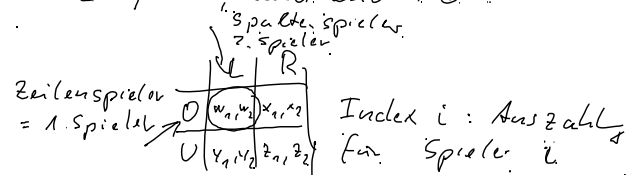 1.
Spaltenspieler
2. Spieler
L R
Zeilenspieler
= 1. Spieler
O w₁, w₂ x₁, x₂
U y₁, y₂ z₁, z₂
Index i : Auszahl
für Spieler i